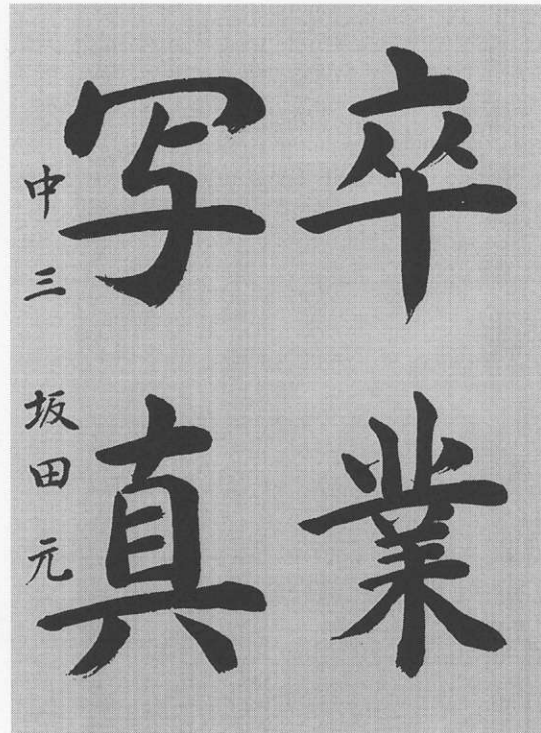 卒業
写真
中三 坂田元